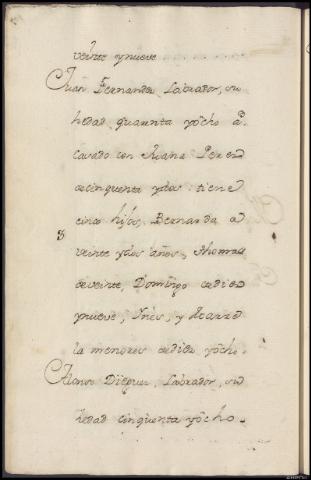 veinte ynueve
Juan Fernandez Labrador, su
hedad quarenta yocho a.
casado con Juana Perez
de cinquenta ydos tiene
cinco hijos, Bernarda de
8 veinte ydos años, thomas
de veinte, Domingo de diez
ynueve, Ines, y
la menores de diez yocho.
Alonso Dieguez, Labrador, su
hedad cinquenta yocho